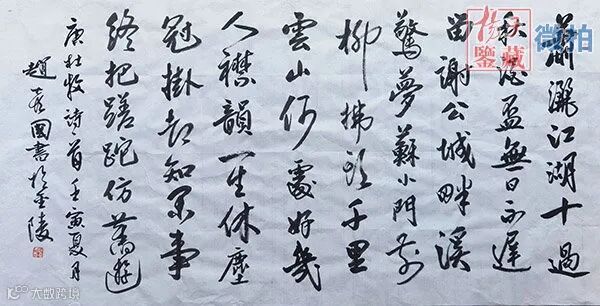 瀟灑江湖十過
秋酒盃無日不遲
留謝公城畔溪
驚夢蘇小門前
柳拂頭千里
雲山何處好幾
人襟韻一生休塵
冠掛却知閑事
終把蹉跎仿舊遊
唐杜牧詩首壬寅夏月
趙喜國書於金陵
鑒藏
微拍
大数跨境